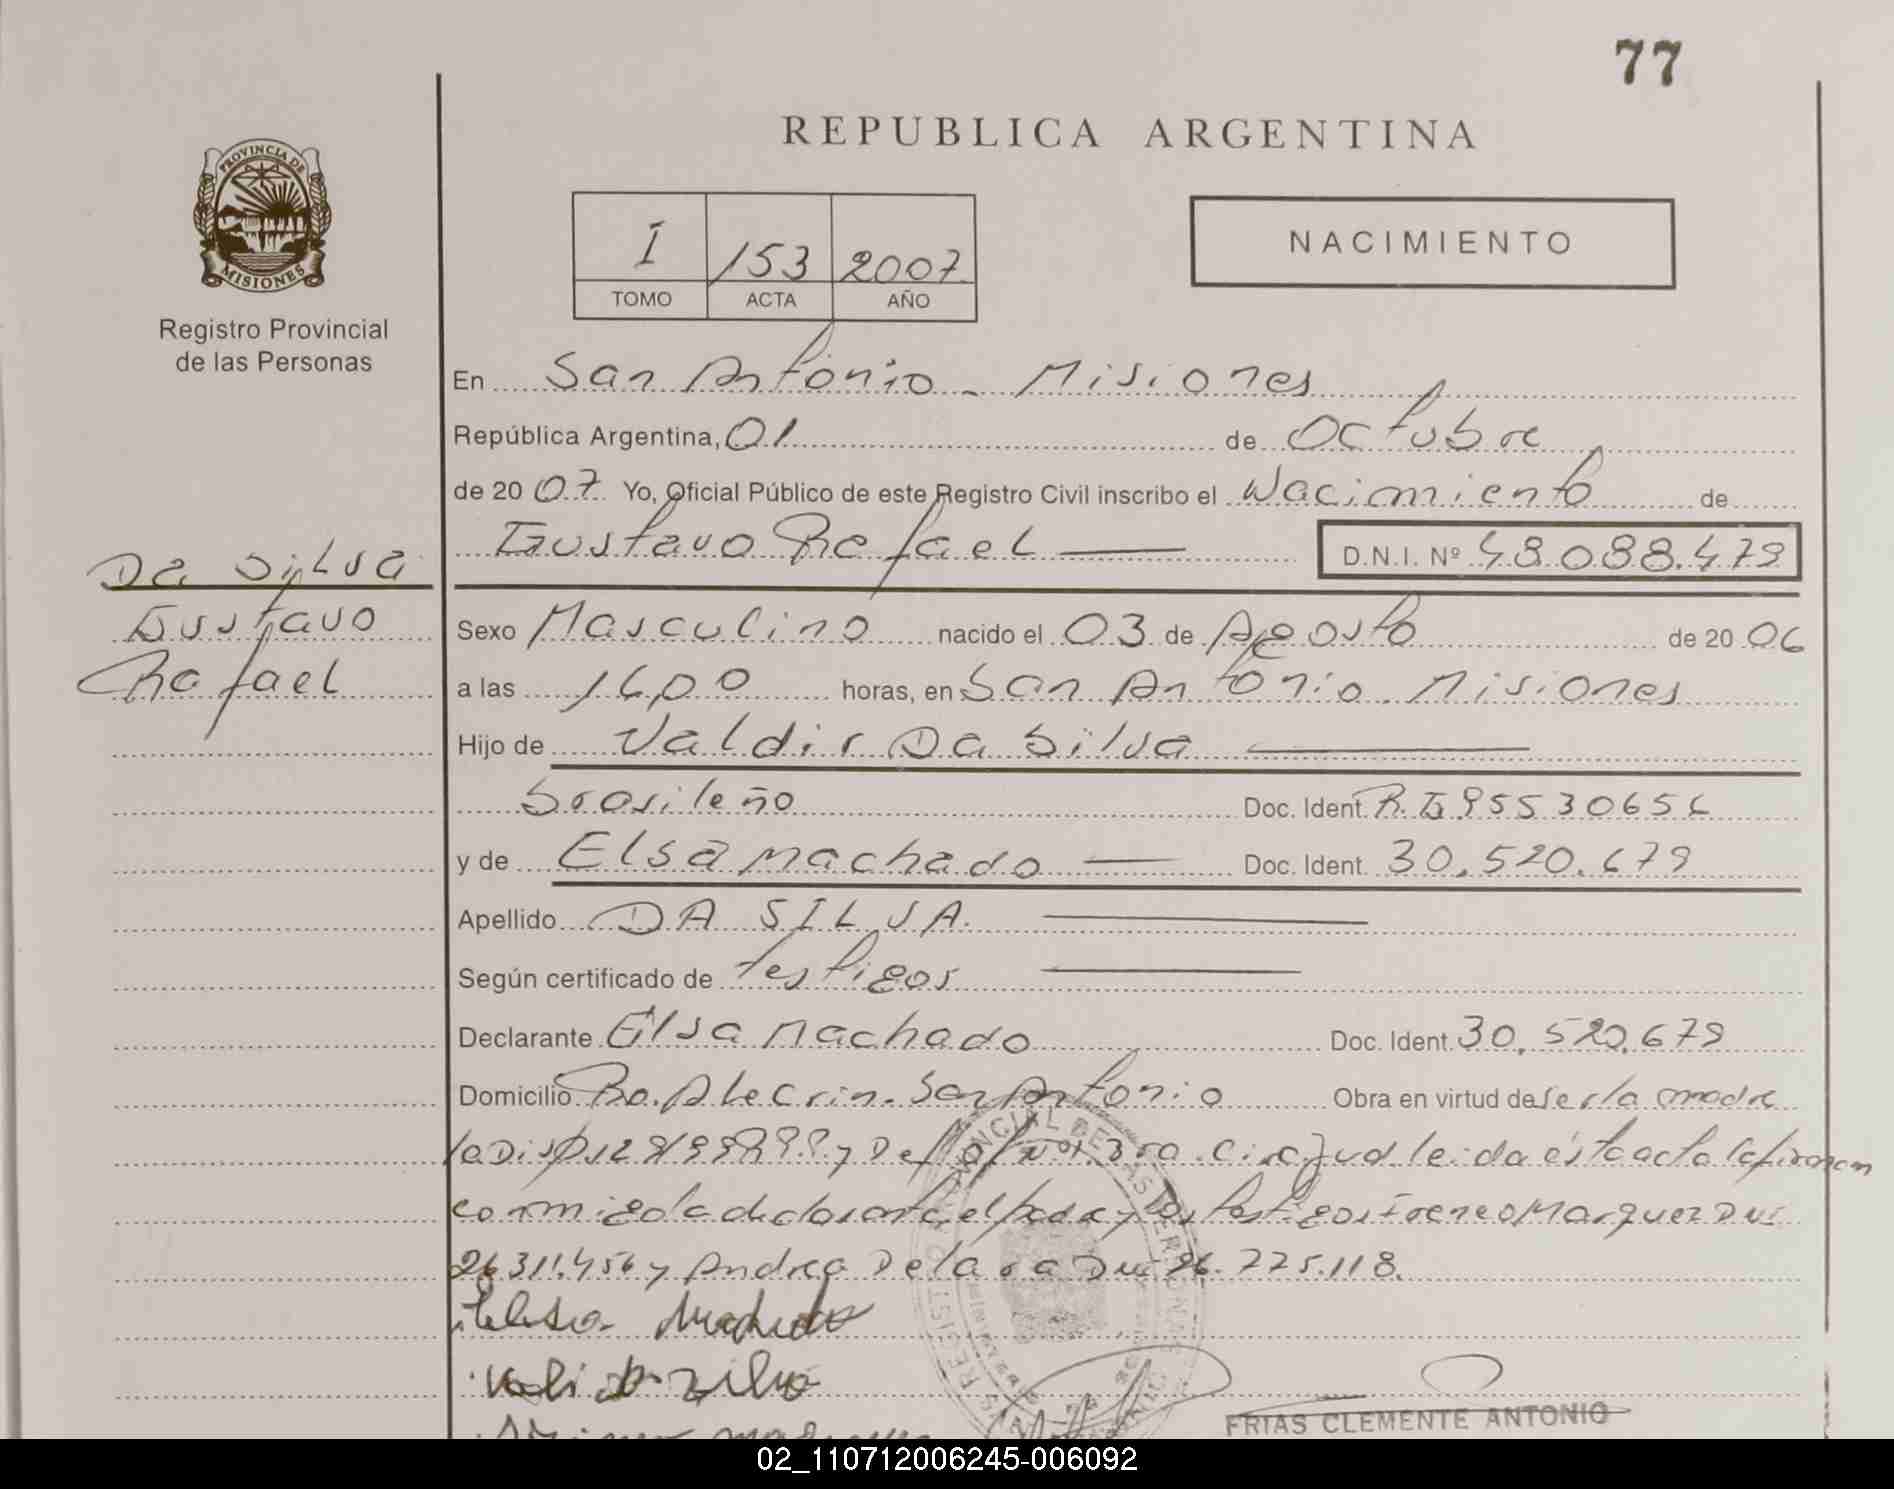 77
REPUBLICA ARGENTINA
PROVINCIA DE
MISIONES
Registro Provincial
de las Personas
I 153 2007
TOMO ACTA AÑO
NACIMIENTO
En San Antonio - Misiones
República Argentina, 01 de Octubre
de 20 07 Yo, Oficial Público de este Registro Civil inscribo el Nacimiento de
Gustavo Rafael
D.N.I. Nº 48.088.479
Da Silva
Gustavo
Rafael
Sexo Masculino nacido el 03 de Agosto de 20 06
a las 16,00 horas, en San Antonio. Misiones
Hijo de Valdir Da Silva
brasileño Doc. Ident. R.G 95530656
y de Elsa Machado Doc. Ident. 30.520.679
Apellido DA SILVA.
Según certificado de testigos
Declarante Elsa Machado Doc. Ident. 30.520.679
Domicilio Alecrin. San Antonio Obra en virtud de ser la madre
y Def. 3ra. Circ Jud leida ésta acta la firman
conmigo la declarante, el padre y los testigos Ireneo Marquez Dni
26.311.456 y Andrea De Lara Dni 26.775.118.
Machado
FRIAS CLEMENTE ANTONIO
02_110712006245-006092